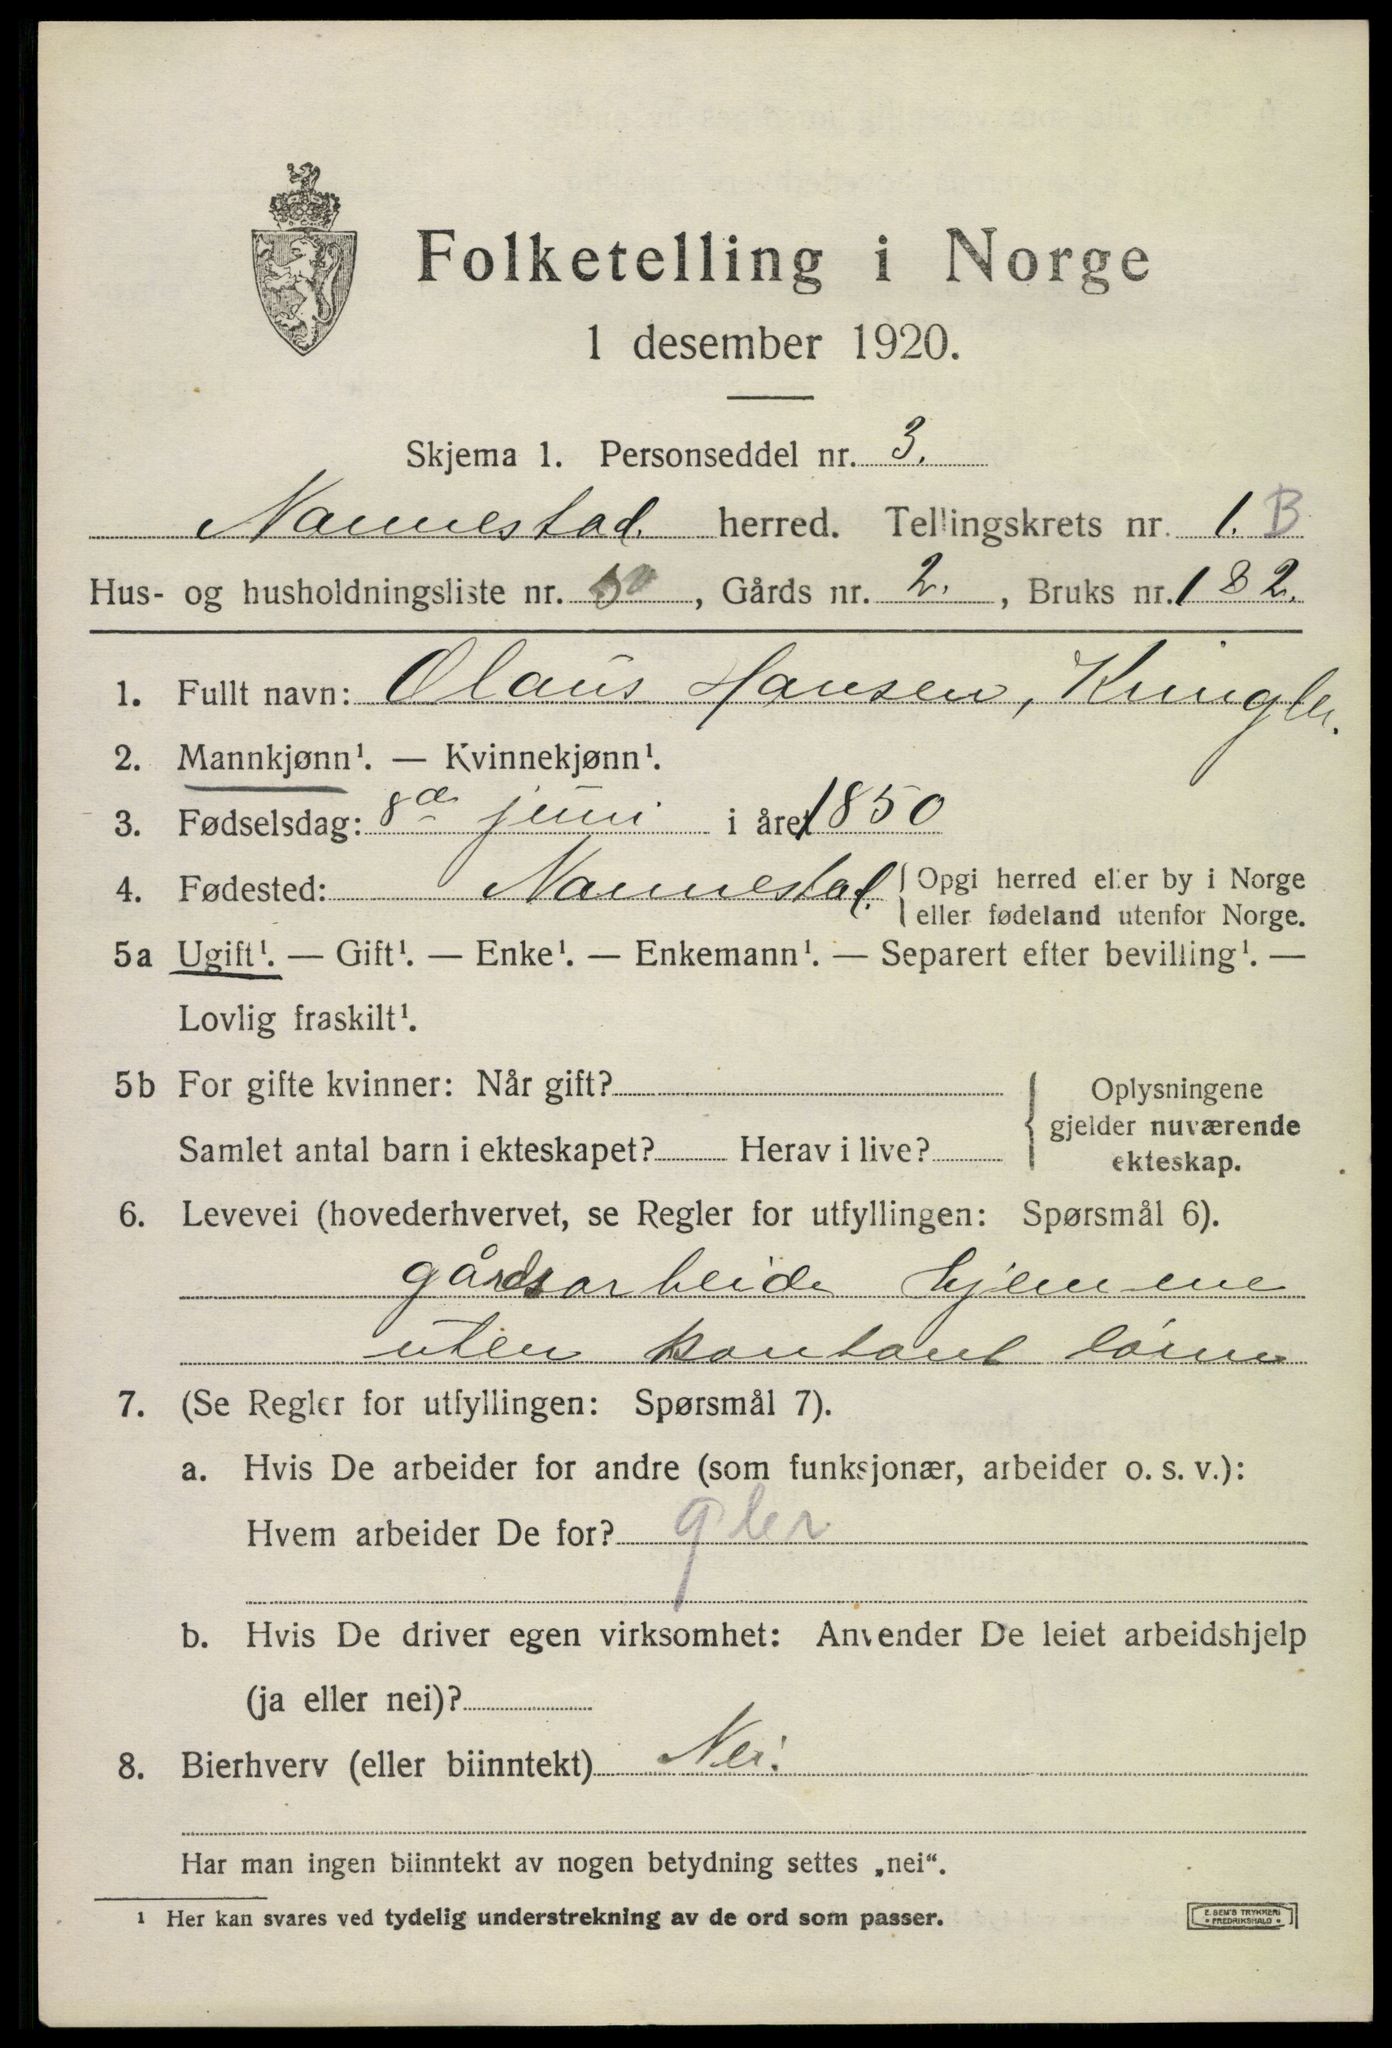 Folketelling i Norge
1 desember 1920.
Skjema 1. Personseddel nr. 3.
Nannestad. herred. Tellingskrets nr. 1. B
Hus- og husholdningsliste nr. 50, Gårds nr. 2., Bruks nr. 182.
1. Fullt navn: Olaus Hansen, Kringler.
2. Mannkjønn¹. — Kvinnekjønn¹.
3. Fødselsdag: 8de juni i året 1850
4. Fødested: Nannestad. Opgi herred eller by i Norge
eller fødeland utenfor Norge.
5a Ugift¹. — Gift¹. — Enke¹. — Enkemann¹. — Separert efter bevilling¹. —
Lovlig fraskilt¹.
5b For gifte kvinner: Når gift? Oplysningene
gjelder nuværende
Samlet antal barn i ekteskapet? Herav i live? ekteskap.
6. Levevei (hovederhvervet, se Regler for utfyllingen: Spørsmål 6).
gårdsarbeide hjemme
uten kontant lønn
7. (Se Regler for utfyllingen: Spørsmål 7).
a. Hvis De arbeider for andre (som funksjonær, arbeider o. s. v.):
Hvem arbeider De for?
b. Hvis De driver egen virksomhet: Anvender De leiet arbeidshjelp
(ja eller nei)?
8. Bierhverv (eller biinntekt) Nei.
Har man ingen biinntekt av nogen betydning settes „nei“.
¹ Her kan svares ved tydelig understrekning av de ord som passer.
E. SEM'S TRYKKERI
• FREDRIKSHALD •